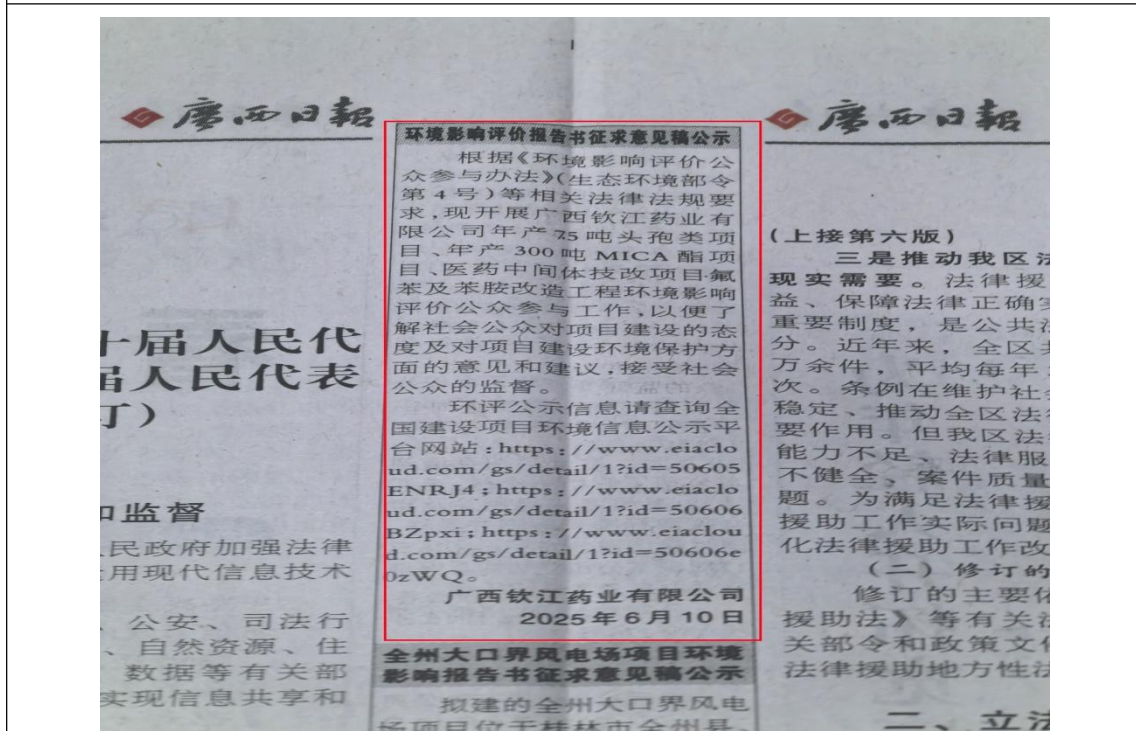 廣西日報
廣西日報
十届人民代
届人民代表
订）
和监督
人民政府加强法律
用现代信息技术
、公安、司法行
、自然资源、住
、数据等有关部
实现信息共享和
环境影响评价报告书征求意见稿公示
根据《环境影响评价公
众参与办法》（生态环境部令
第 4 号）等相关法律法规要
求，现开展广西钦江药业有
限公司年产 75 吨头孢类项
目、年产 300 吨 MICA 酯项
目、医药中间体技改项目-氟
苯及苯胺改造工程环境影响
评价公众参与工作，以便了
解社会公众对项目建设的态
度及对项目建设环境保护方
面的意见和建议，接受社会
公众的监督。
环评公示信息请查询全
国建设项目环境信息公示平
台网站：https://www.eiaclo
ud.com/gs/detail/1?id=50605
ENRJ4；https://www.eiaclo
ud.com/gs/detail/1?id=50606
BZpxi；https://www.eiaclou
d.com/gs/detail/1?id=50606e
0zWQ。
广西钦江药业有限公司
2025 年 6 月 10 日
全州大口界风电场项目环境
影响报告书征求意见稿公示
拟建的全州大口界风电
场项目位于桂林市全州县
（上接第六版）
三是推动我区法
现实需要。法律援
益、保障法律正确实
重要制度，是公共法
分。近年来，全区共
万余件，平均每年
次。条例在维护社会
稳定、推动全区法律
要作用。但我区法
能力不足、法律服
不健全、案件质量
题。为满足法律援
援助工作实际问题
化法律援助工作改
（二）修订的
修订的主要依
援助法》等有关法
关部令和政策文件
法律援助地方性法
二、立法